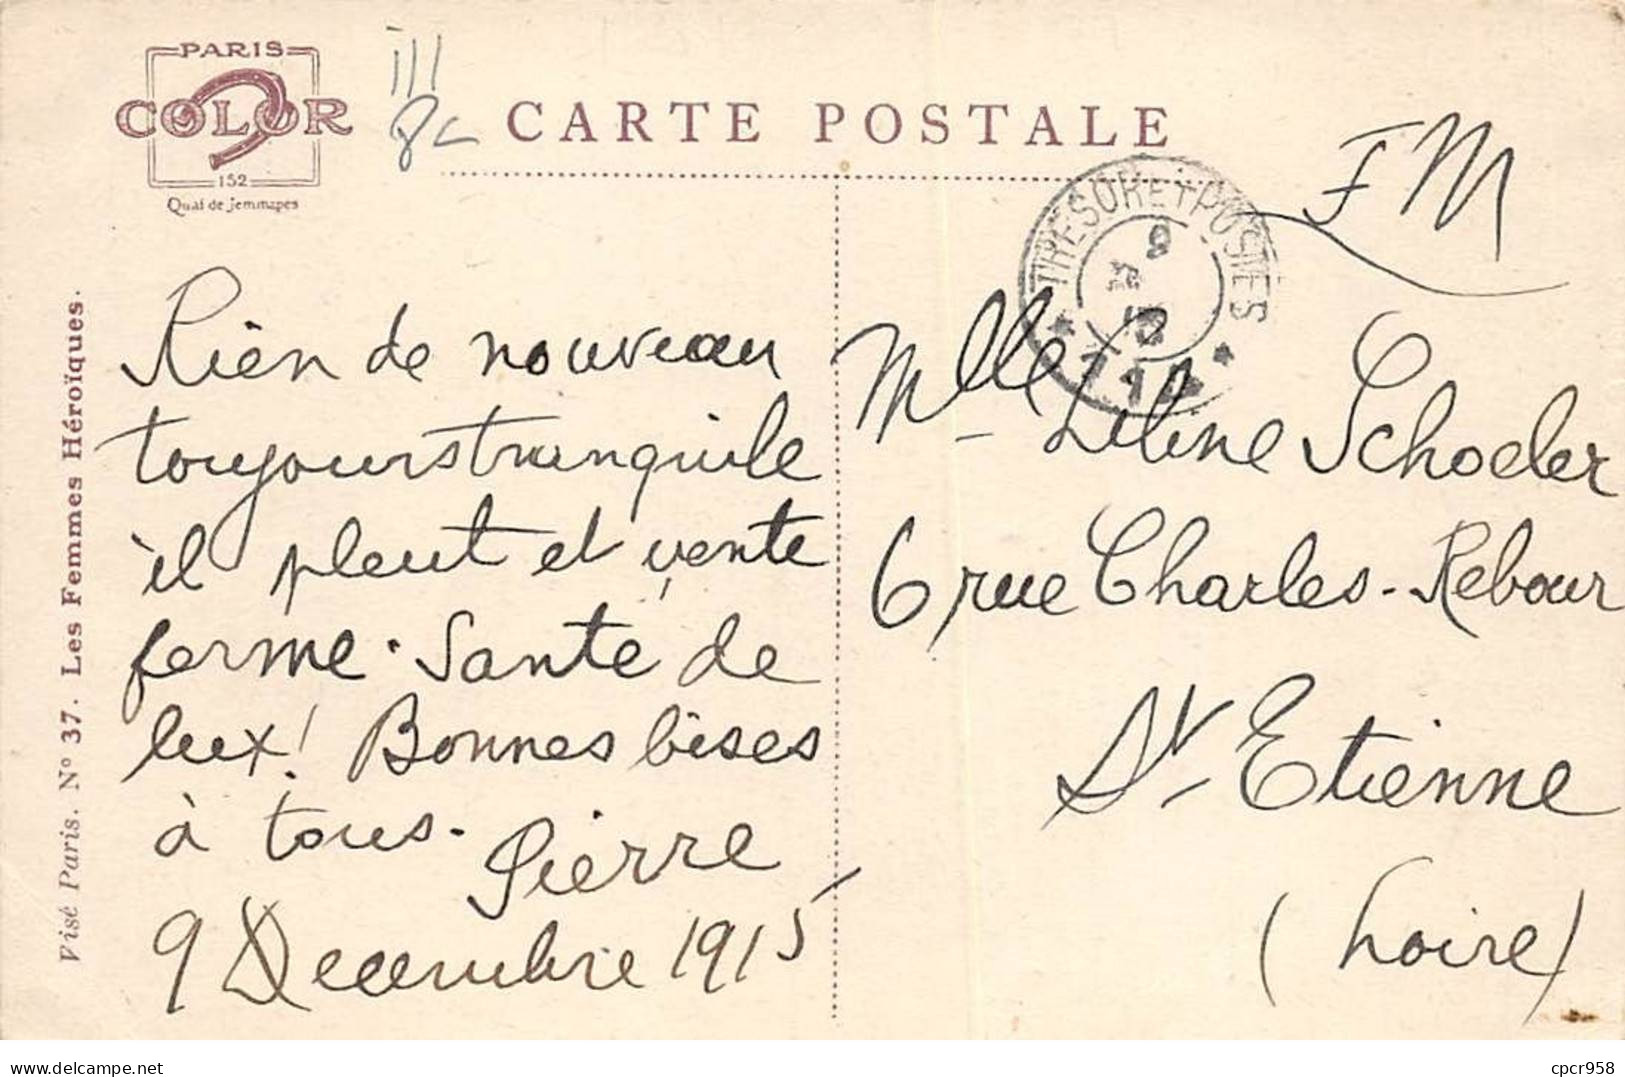 PARIS
COLOR
152
Quai de Jemmapes
CARTE POSTALE
FM
TRESOR ET POSTES
9
Rien de nouveau
toujours tranquile
il pleut et vente
ferme. Santé de
lux! Bonnes bises
à tous.
Pierre
9 Decembre 1915
Mlle Liline Schoeler
6 rue Charles-Rebour
St-Etienne
(Loire)
Visé Paris. N° 37. Les Femmes Héroïques.
delcampe.net
cpcr958